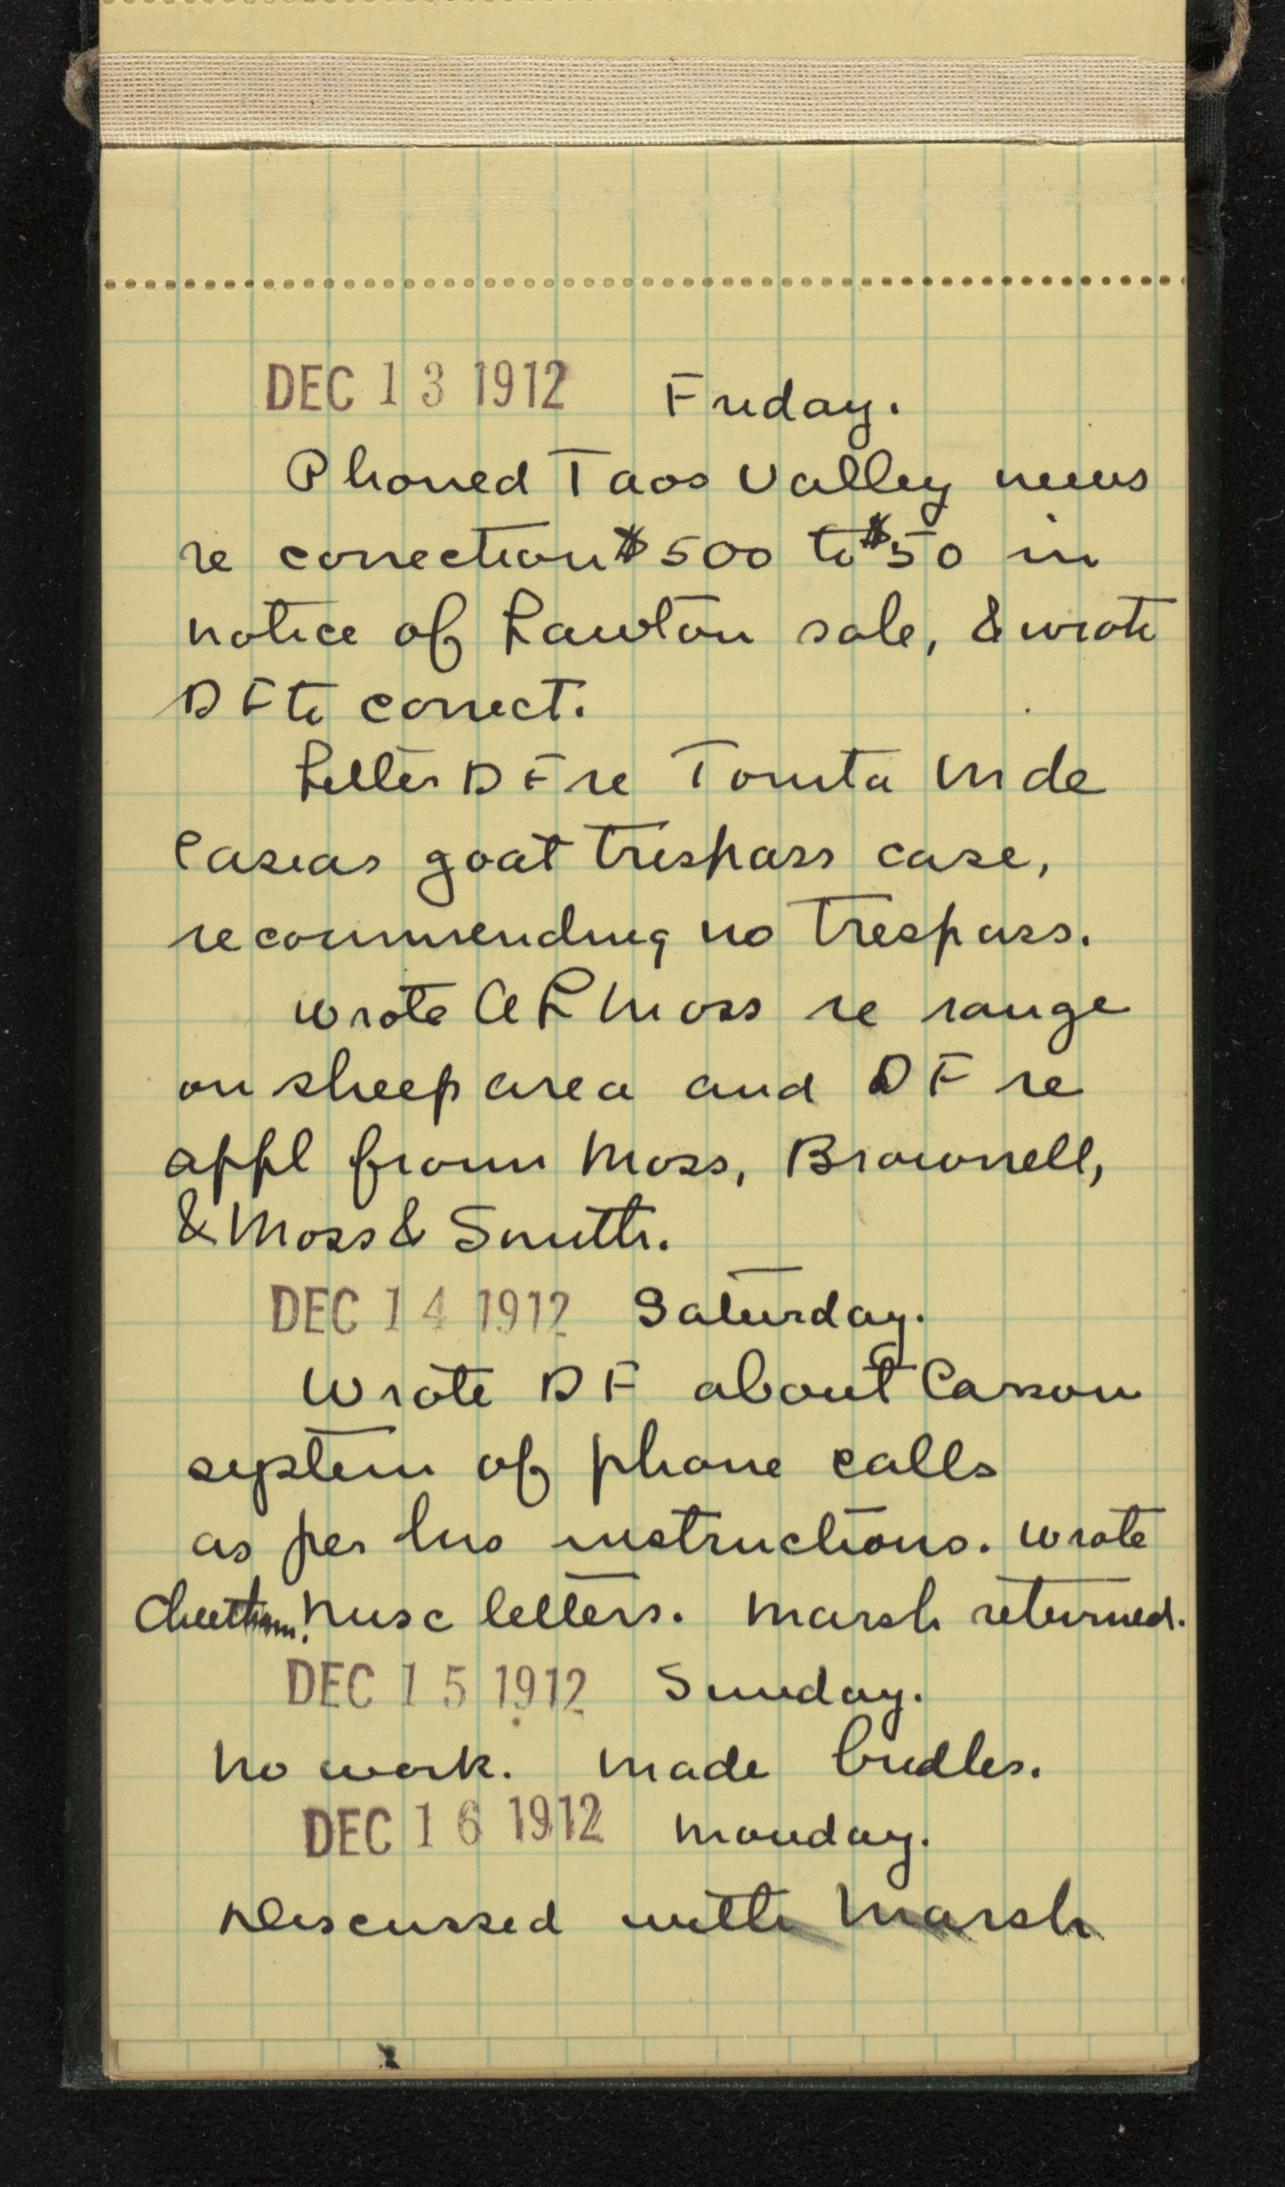 DEC 13 1912 Friday.
Phoned Taos Valley news
re correction $500 to $50 in
notice of Lawton sale, & wrote
DF to correct.
Letter DF re Tomita M de
Casias goat trespass case,
recommending no trespass.
Wrote A L Moss re range
on sheep area and DF re
appl from Moss, Brownell,
& Moss & Smith.
DEC 14 1912 Saturday.
Wrote DF about Carson
system of phone calls
as per his instructions. Wrote
Cheetham. Misc letters. Marsh returned.
DEC 15 1912 Sunday.
No work. Made bridles.
DEC 16 1912 Monday.
Discussed with Marsh